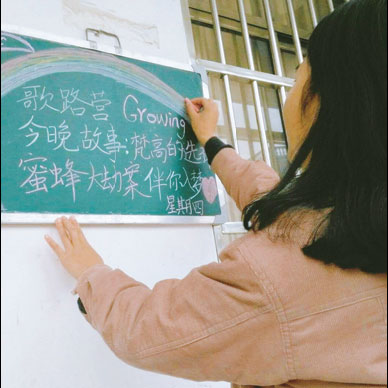 歌路营 Growing
今晚故事:梵高的选择
蜜蜂大劫案伴你入梦
星期四